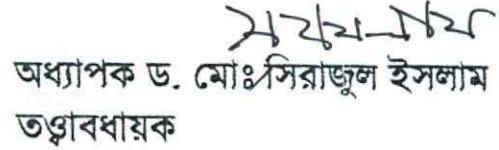 অধ্যাপক ড. মোঃ সিরাজুল ইসলাম
তত্ত্বাবধায়ক